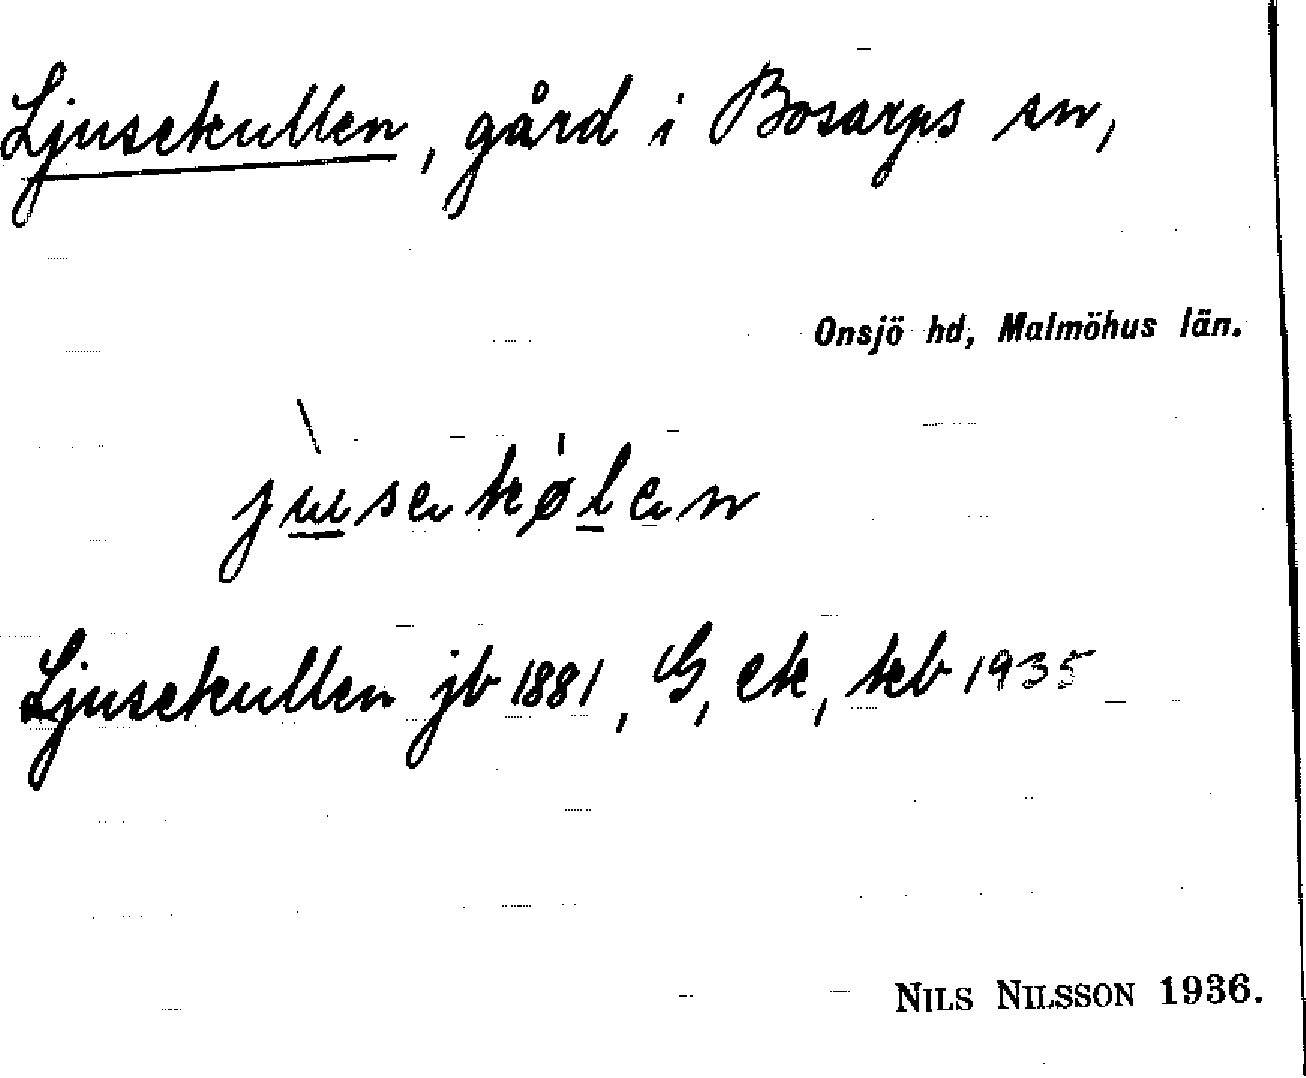 Ljusekullen, gård i Bosarps sn,
Onsjö hd, Malmöhus län.
Ljusekullen jb 1881, G, ek, kb 1935
NILS NILSSON 1936.